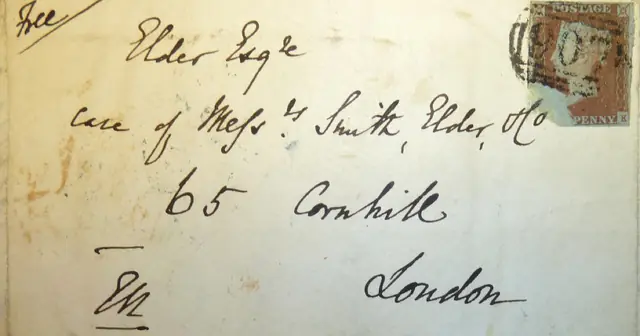 Free
POSTAGE
907
PENNY
Elder Esqre
care of Messrs. Smith, Elder, & Co
65 Cornhill
London